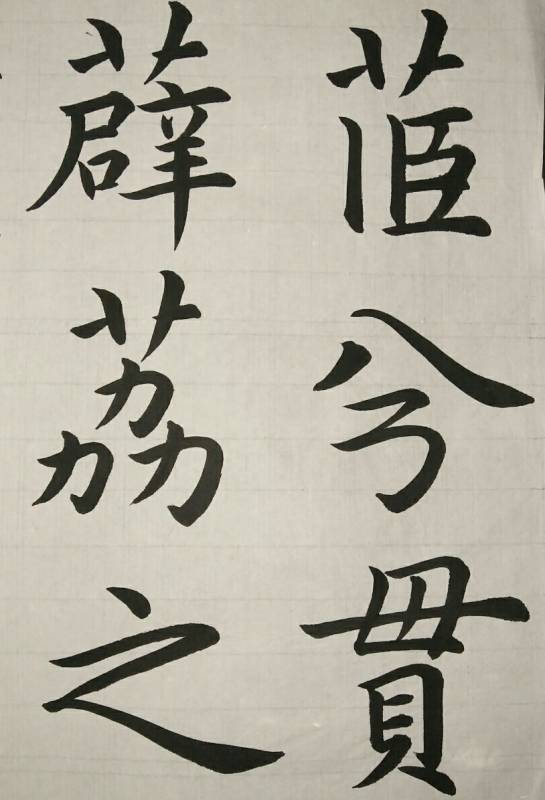 茝兮貫
薜荔之